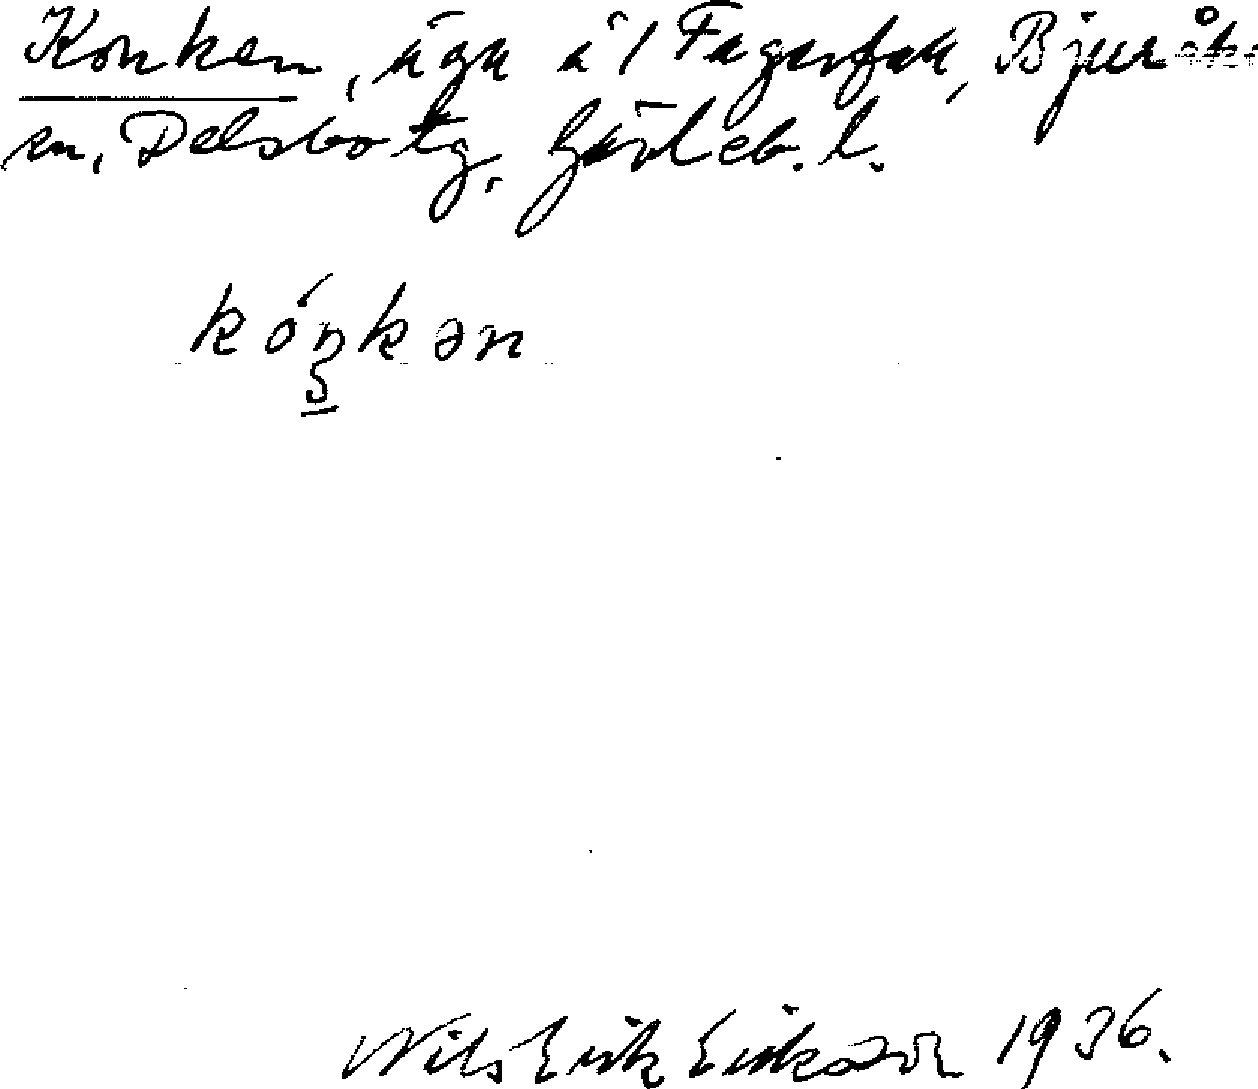 Konken, äga å 1 Fagerfall, Bjuråk
en, Delsbo tg, Gävleb. l.
kóŋkən
Nils Erik Eriksson 1936.